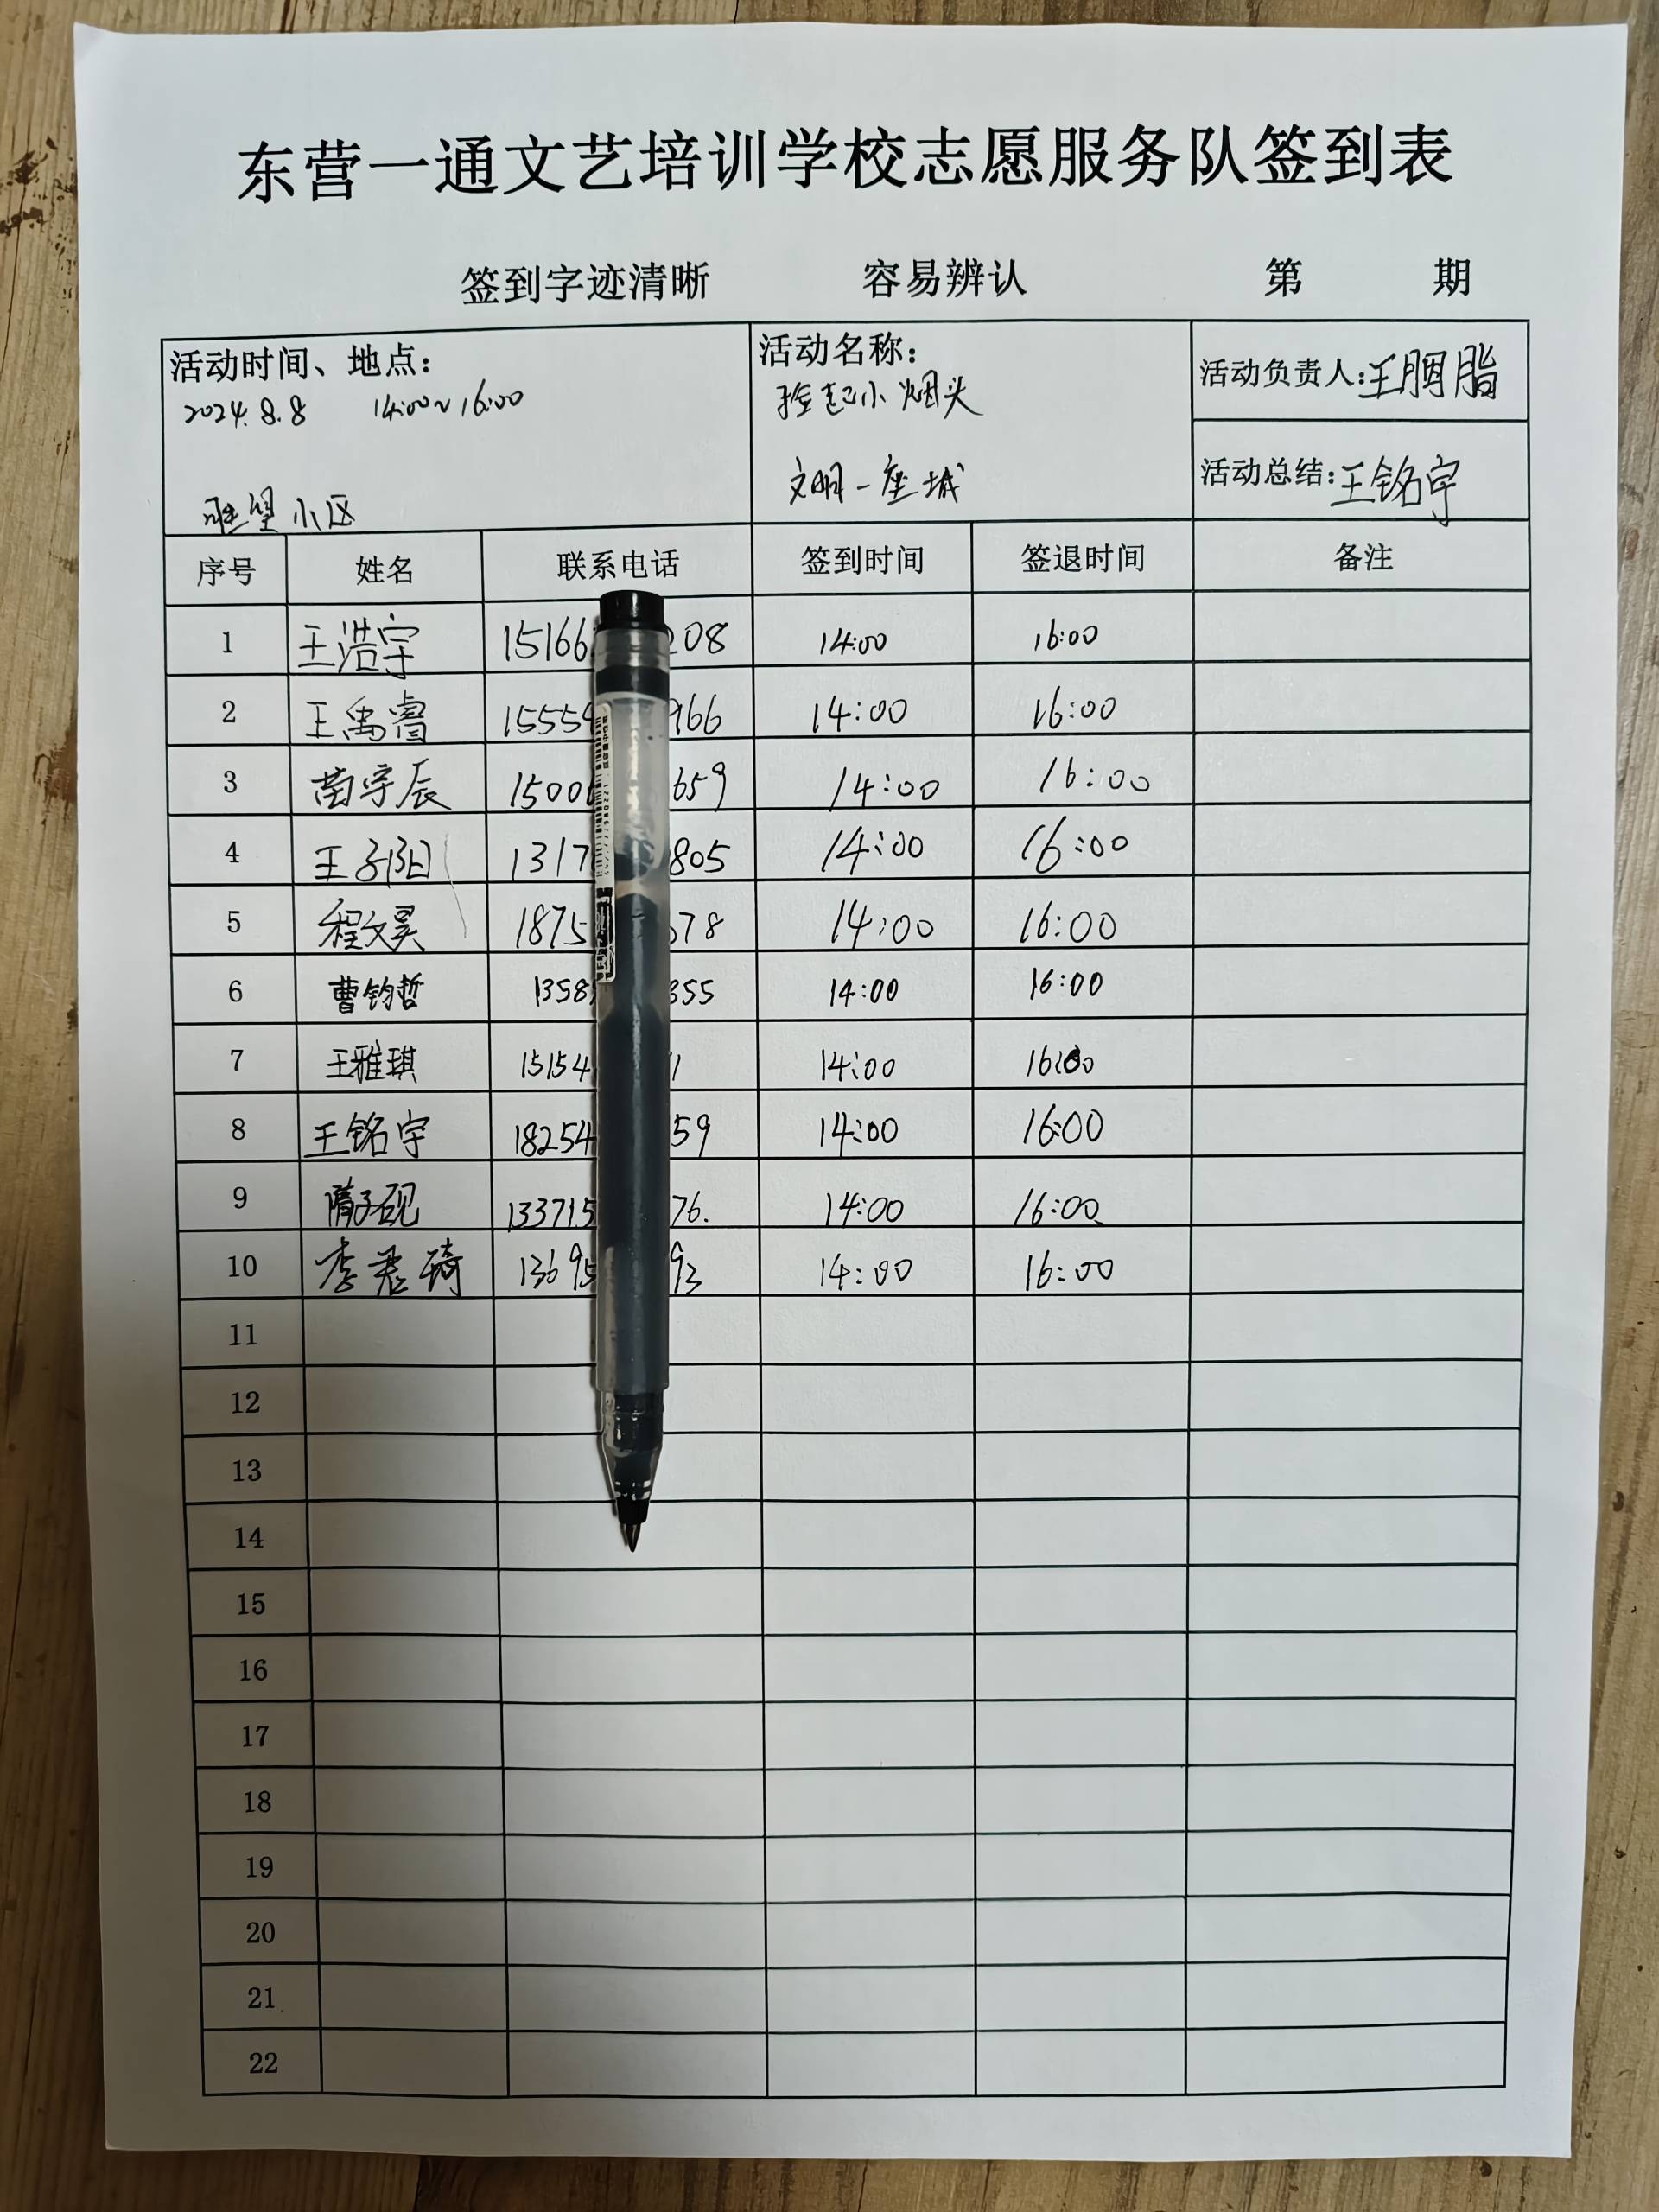 东营一通文艺培训学校志愿服务队签到表
签到字迹清晰 容易辨认 第 期
活动时间、地点: 活动名称: 活动负责人:王胭脂
2024.8.8 14:00~16:00 捡起小烟头
小区 文明一座城 活动总结:王铭宇
序号 姓名 联系电话 签到时间 签退时间 备注
1 王浩宇 15166 208 14:00 16:00
2 王禹睿 15554 966 14:00 16:00
3 苗宇辰 1500 659 14:00 16:00
4 王子阳 1317 805 14:00 16:00
5 程文昊 1875 78 14:00 16:00
6 曹钧哲 1358 355 14:00 16:00
7 王雅琪 15154 1 14:00 16:00
8 王铭宇 18254 59 14:00 16:00
9 隋子砚 133715 76. 14:00 16:00
10 李君琦 13695 93 14:00 16:00
11
12
13
14
15
16
17
18
19
20
21
22